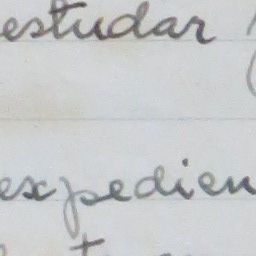 estudar
expedien